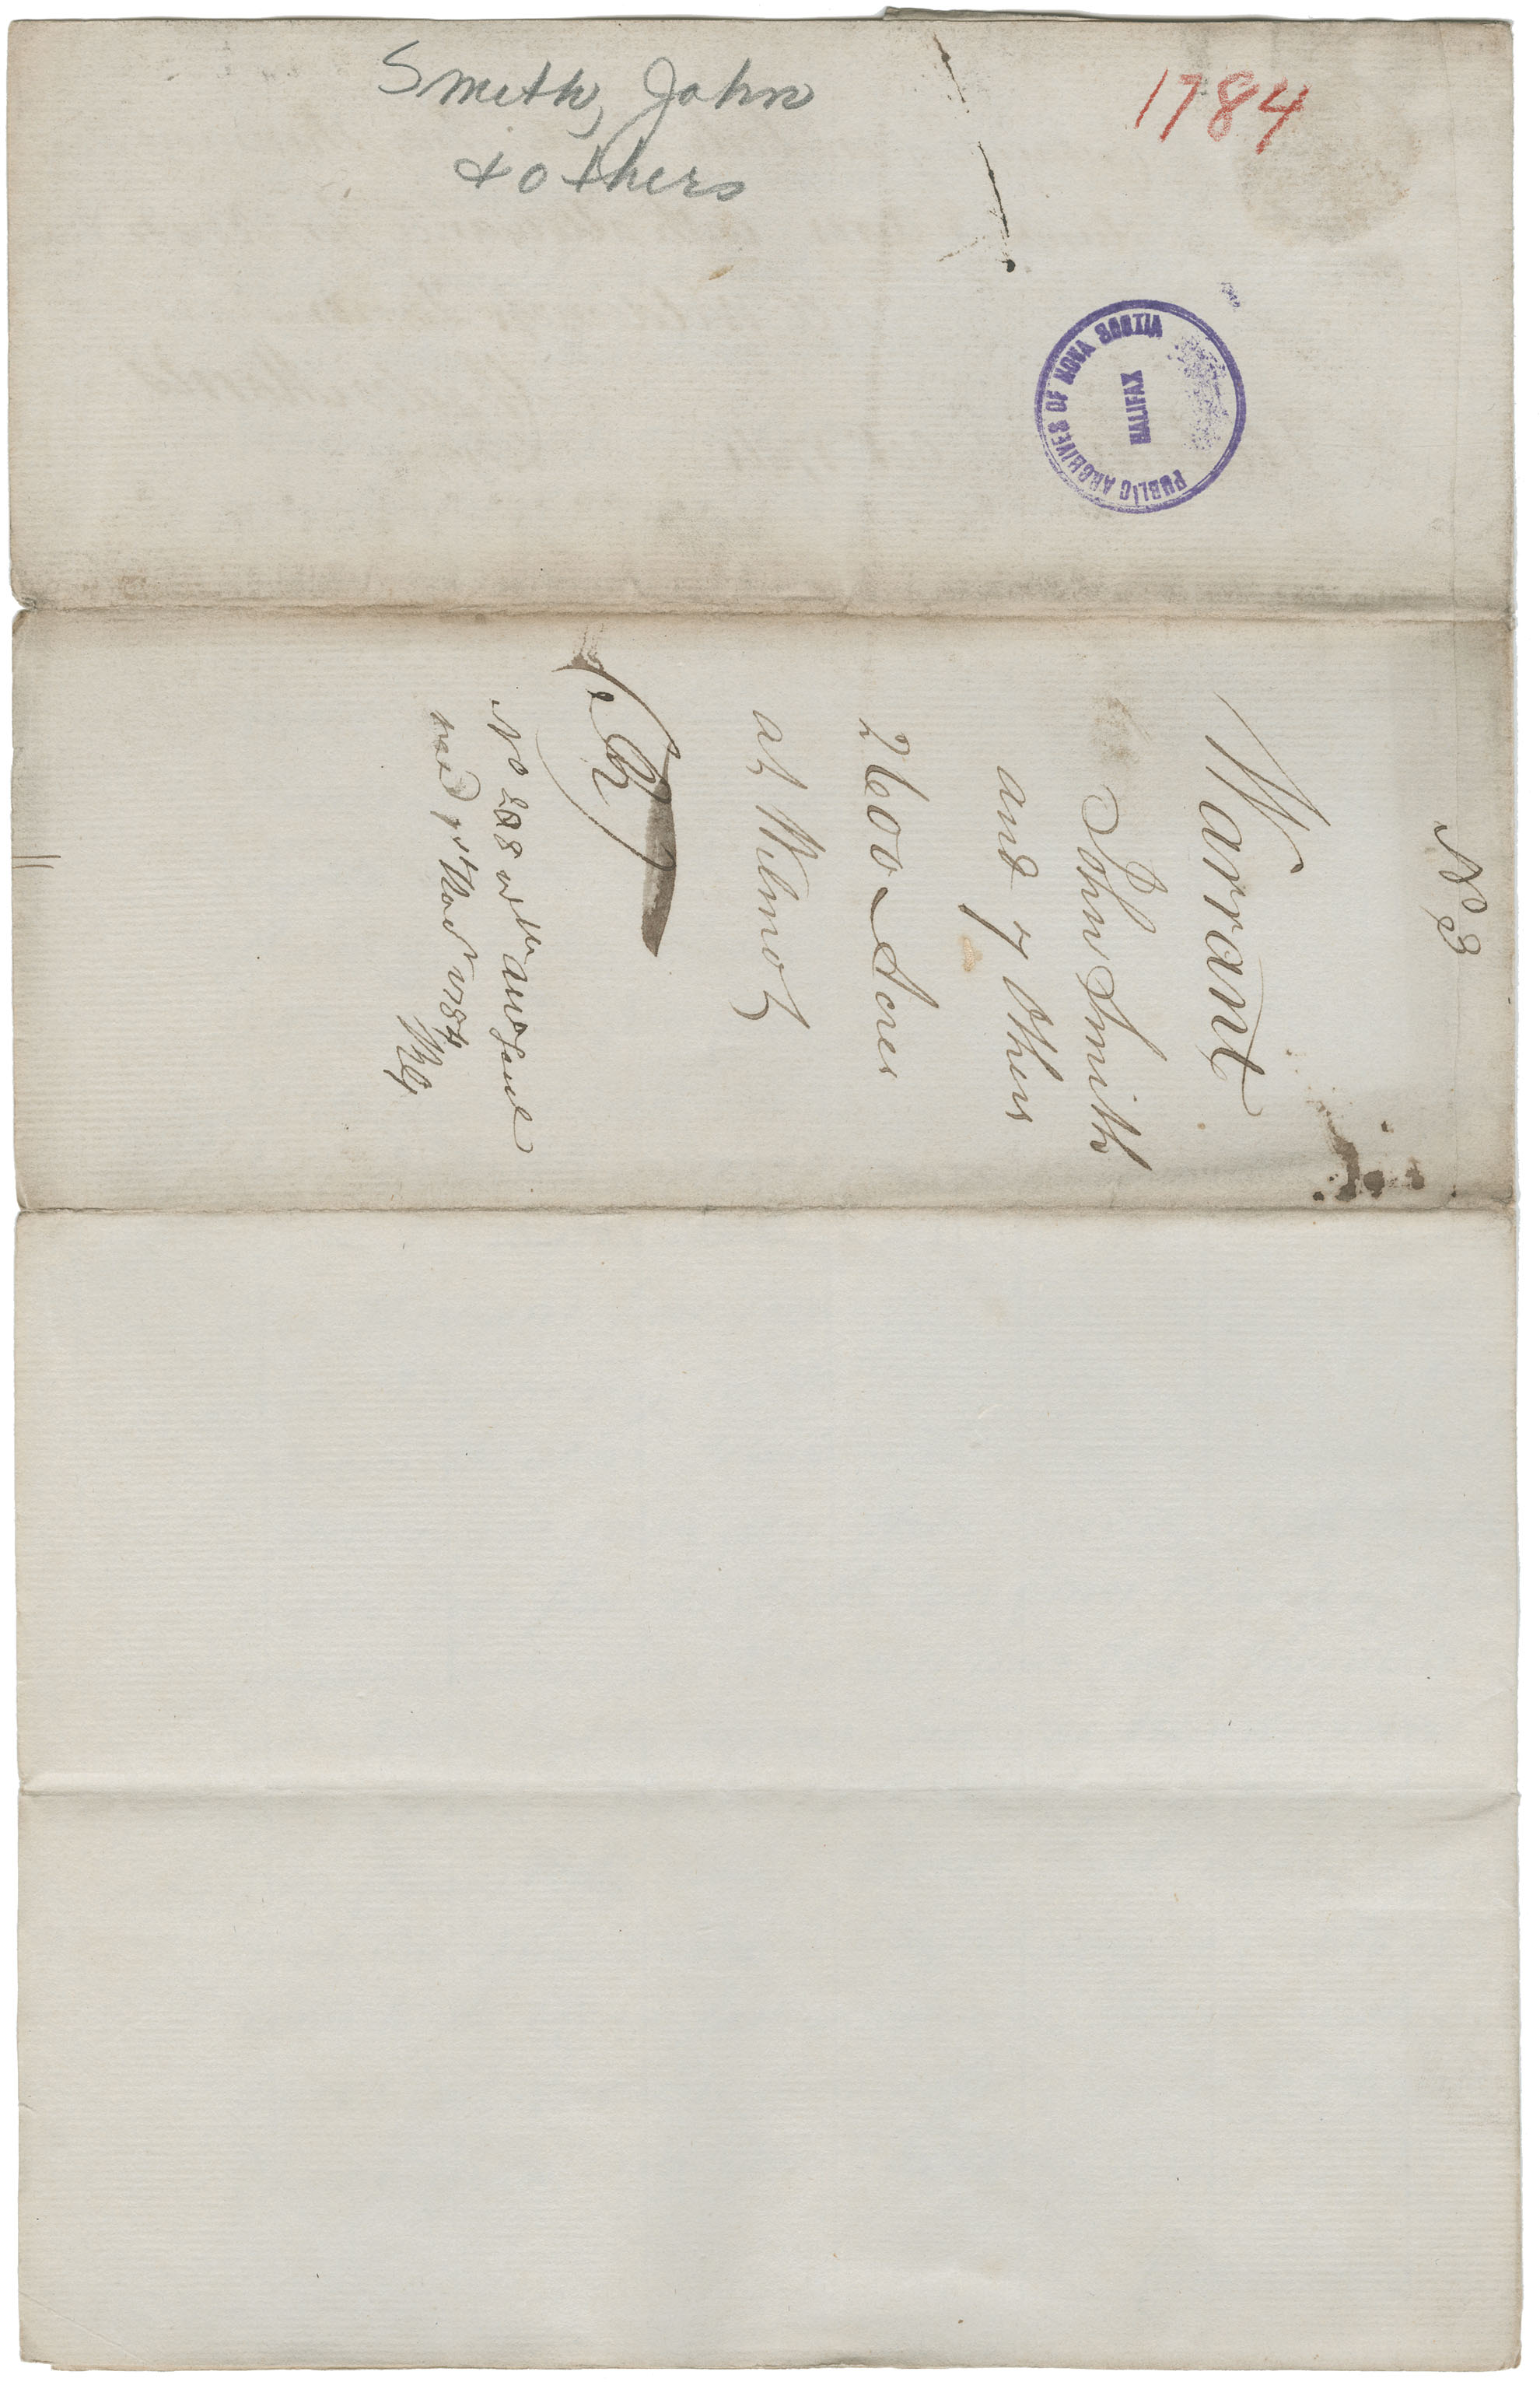 Smith, John
& others
1784
PUBLIC ARCHIVES OF NOVA SCOTIA
HALIFAX
No 3
Warrant
John Smith
and 7 Others
2600 Acres
at Wilmot
No
1784